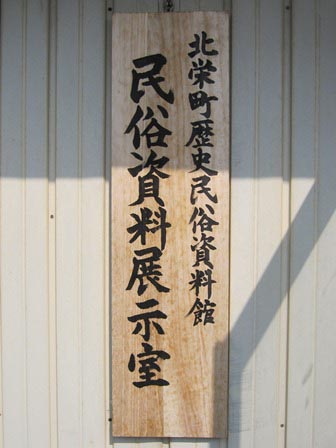 北栄町歴史民俗資料館
民俗資料展示室